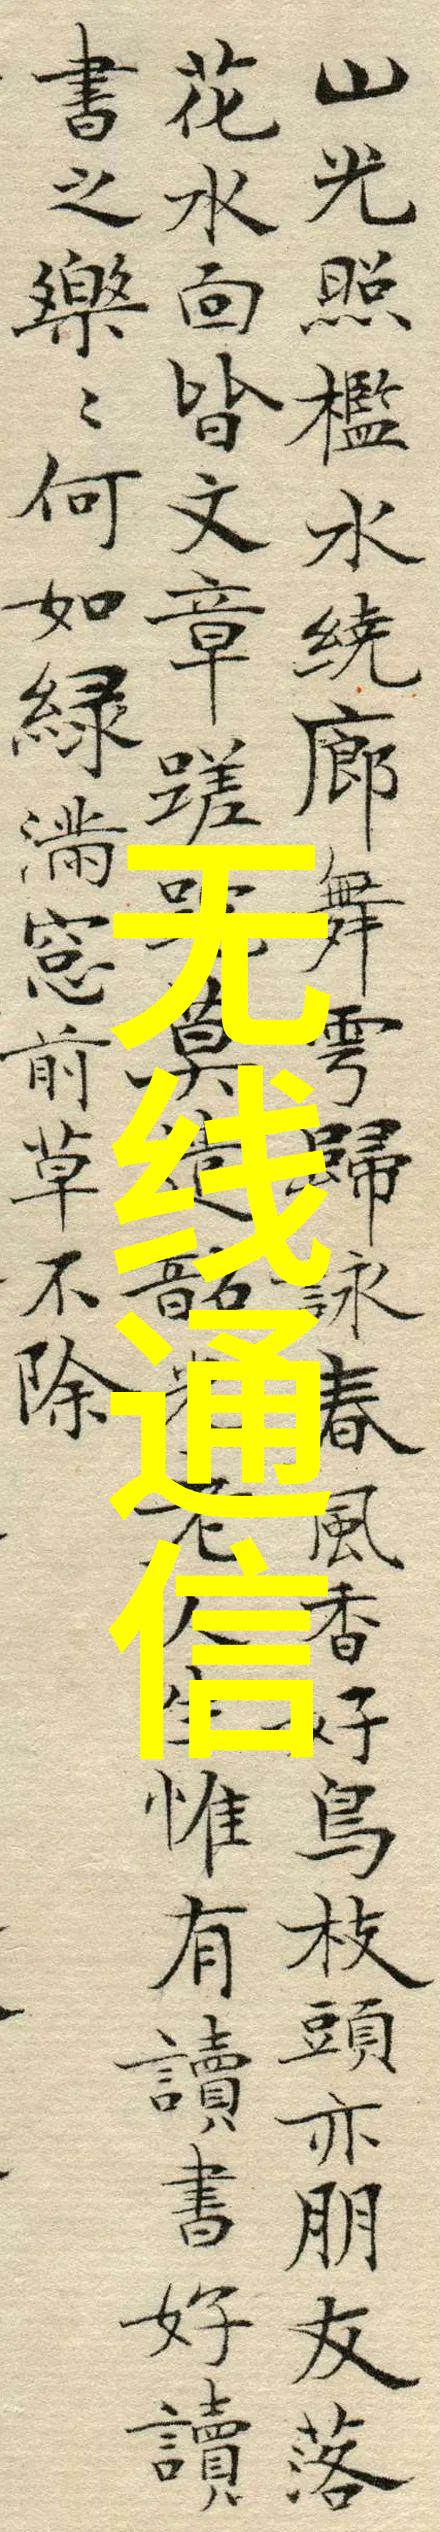 山光照檻水繞廊舞雩歸詠春風香好鳥枝頭亦朋友落
花水面皆文章蹉跎莫遣韶光老人生惟有讀書好讀
書之樂〻何如綠滿窓前草不除
无线通信